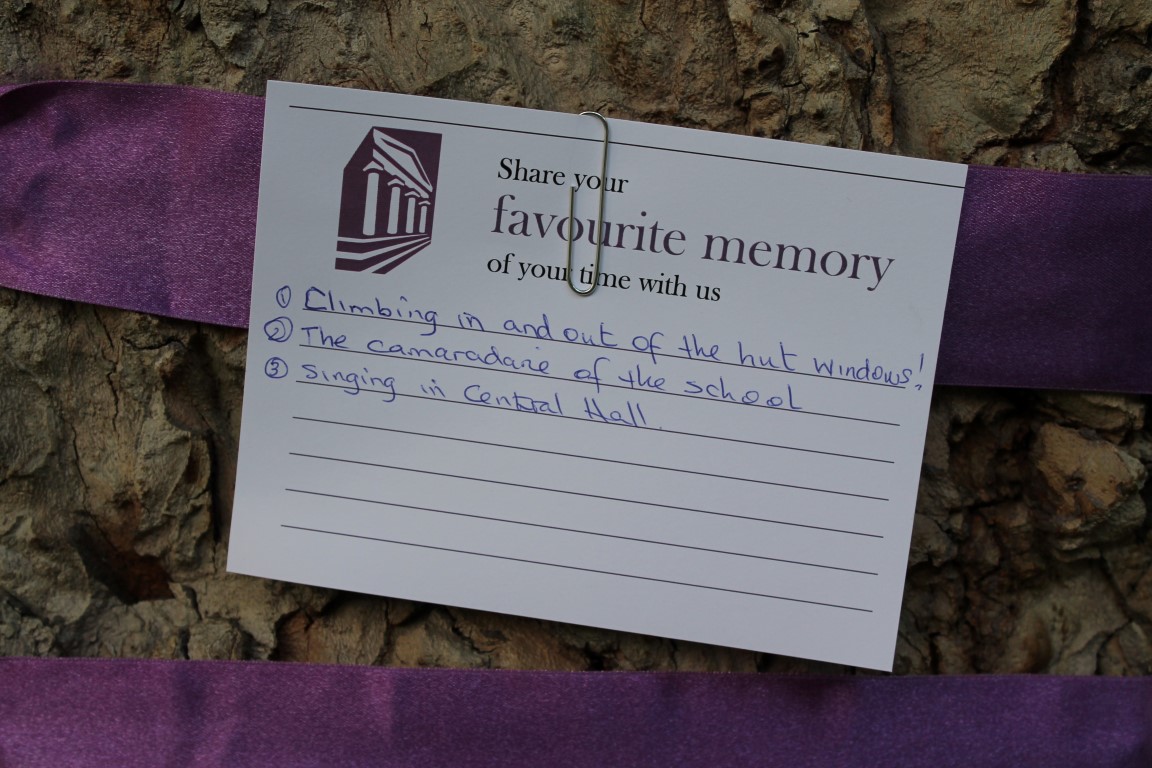 Share your
favourite memory
of your time with us
① Climbing in and out of the hut windows!
② The camaradarie of the school
③ Singing in Central Hall.